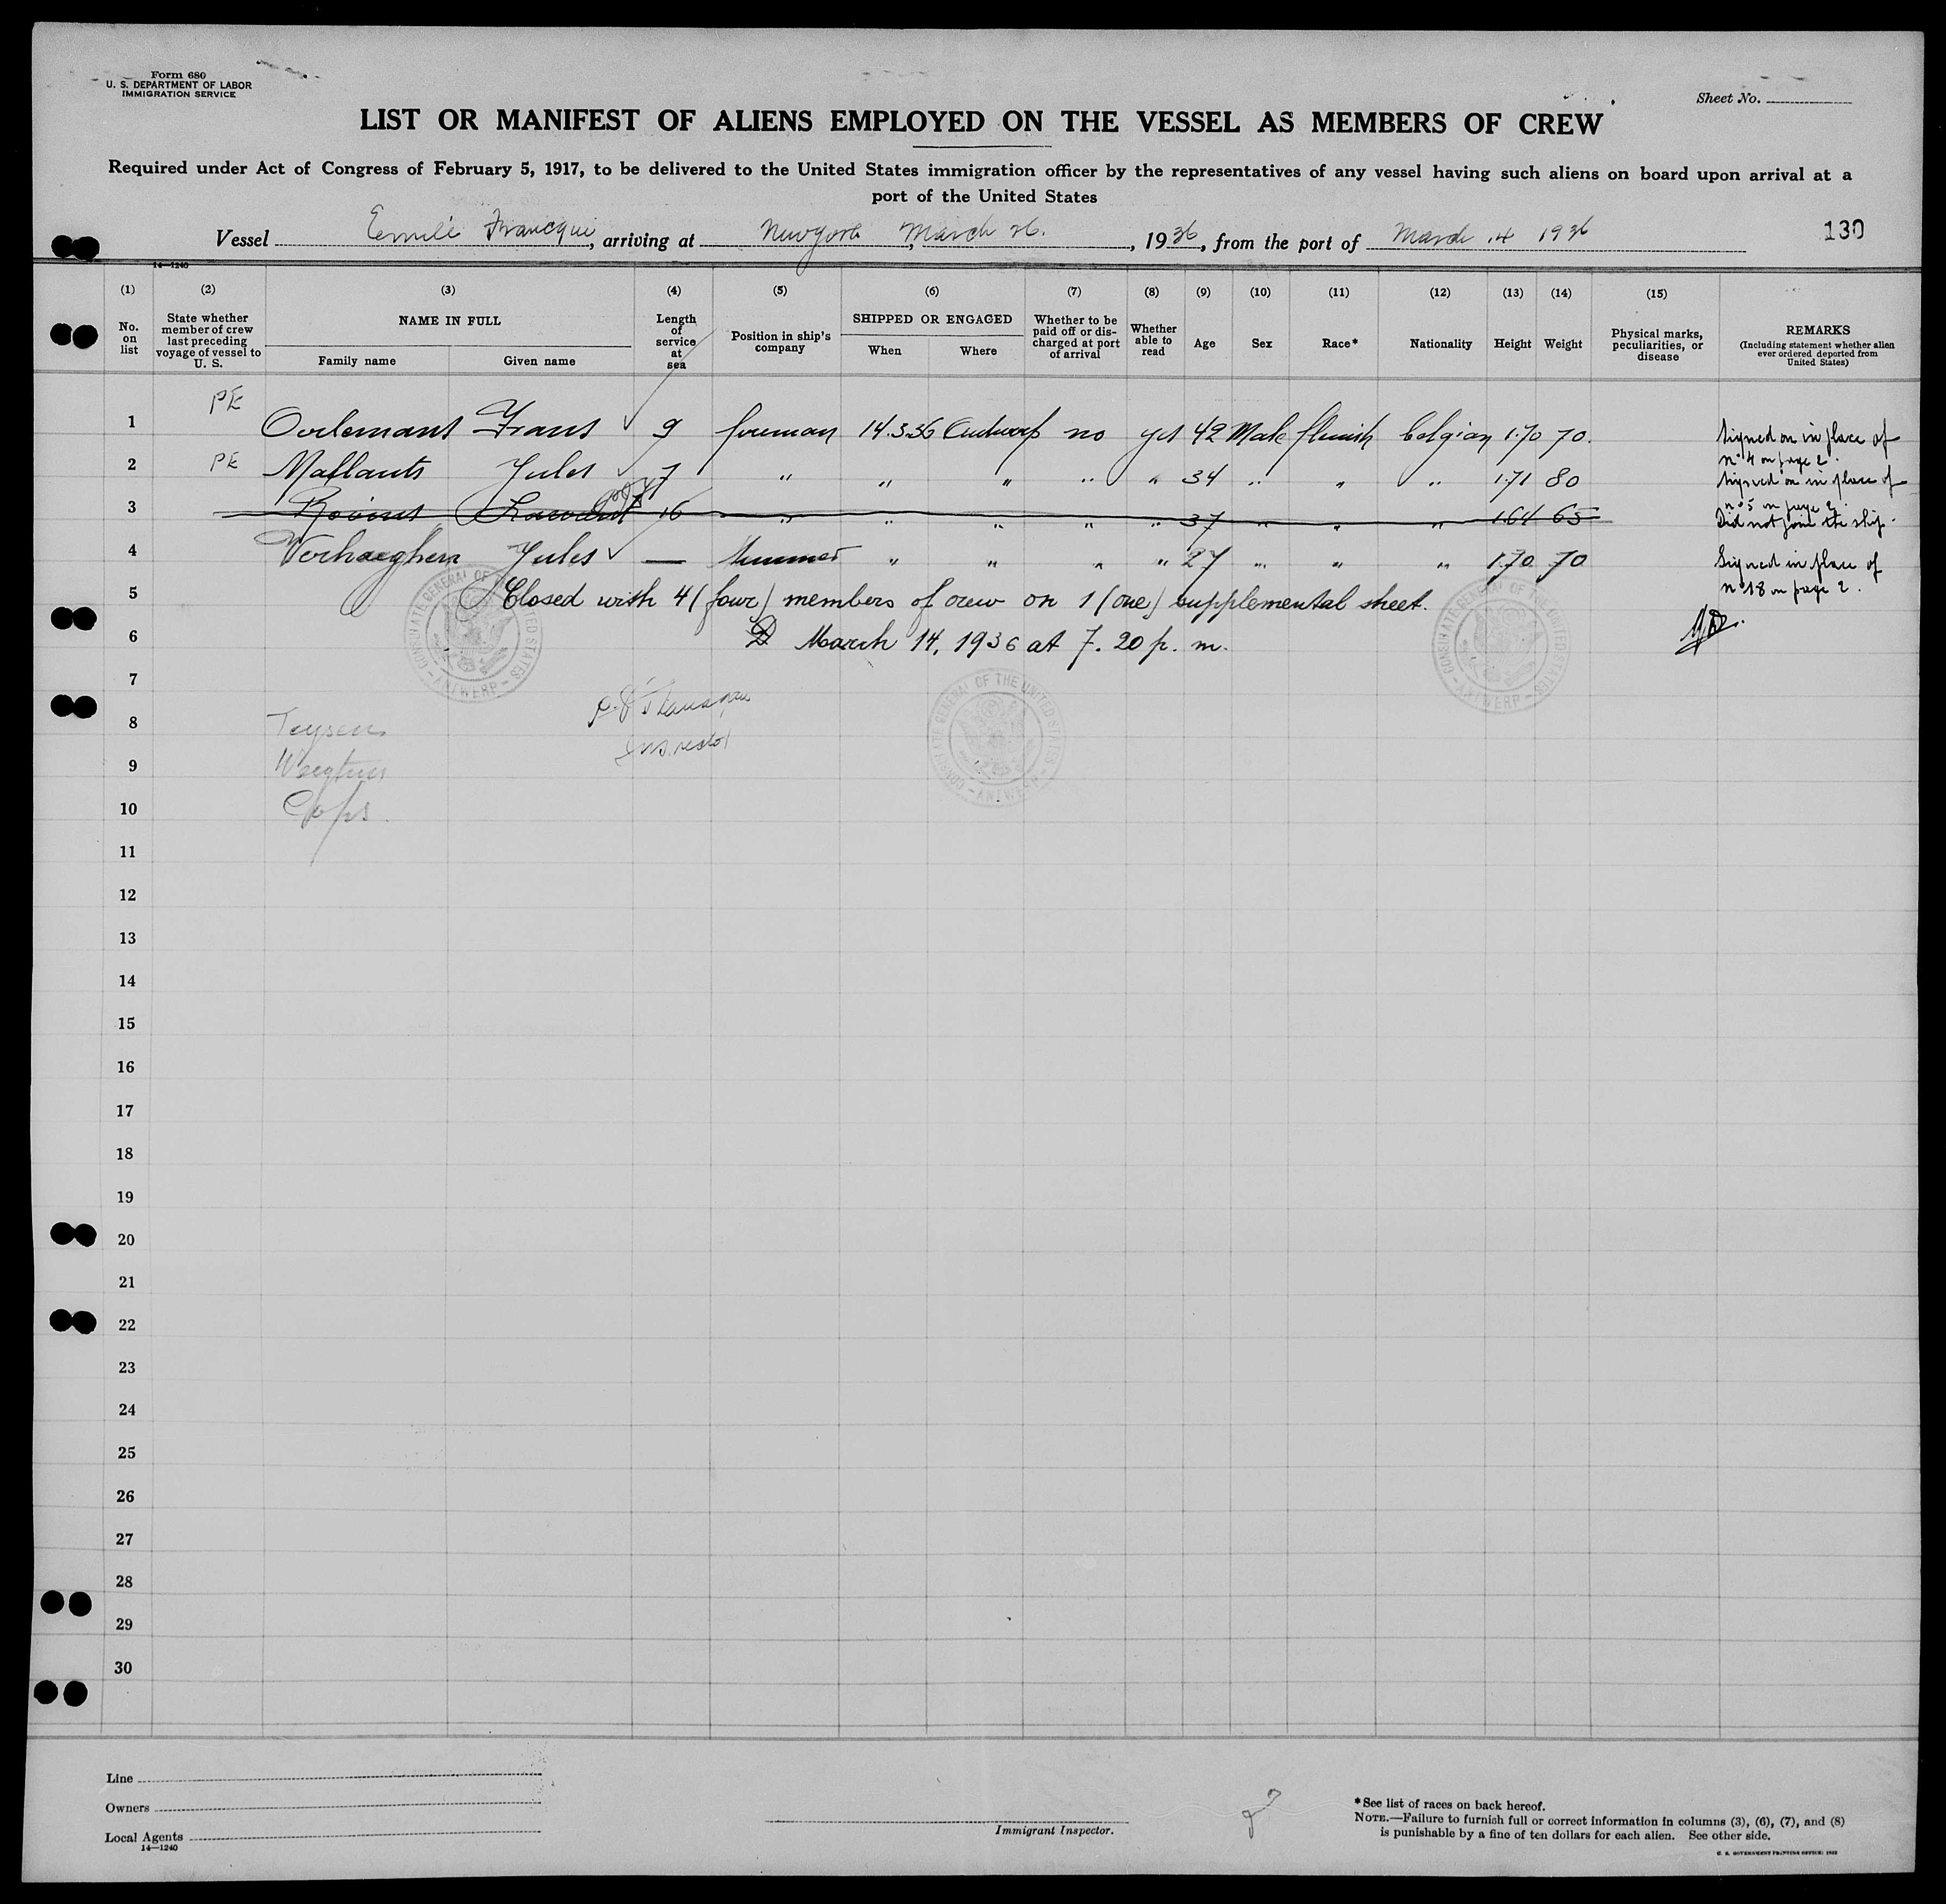 Form 680
U. S. DEPARTMENT OF LABOR
IMMIGRATION SERVICE
Sheet No.
LIST OR MANIFEST OF ALIENS EMPLOYED ON THE VESSEL AS MEMBERS OF CREW
Required under Act of Congress of February 5, 1917, to be delivered to the United States immigration officer by the representatives of any vessel having such aliens on board upon arrival at a
port of the United States
Vessel Emile Francqui, arriving at Newyork, March 26., 1936, from the port of March 14 1936
130
14—1240
(1) (2) (3) (4) (5) (6) (7) (8) (9) (10) (11) (12) (13) (14) (15)
No. on list
State whether member of crew last preceding voyage of vessel to U. S.
NAME IN FULL
Family name Given name
Length of service at sea
Position in ship's company
SHIPPED OR ENGAGED
When Where
Whether to be paid off or discharged at port of arrival
Whether able to read
Age Sex Race* Nationality Height Weight
Physical marks, peculiarities, or disease
REMARKS
(Including statement whether alien ever ordered deported from United States)
PE
1 Frans 9 foreman 14.3.36 Antwerp no yes 42 Male flemish belgian 1.70 70. Signed on in place of
n° 4 on page 2.
2 PE Jules 7 " " " " " 34 " " " 1.71 80 Signed on in place of
n° 5 on page 2.
3 16 " " " " " 37 " " " 1.64 65 Did not join the ship.
4 Verhaeghen Jules — " " " " 27 " " " 1.70 70 Signed in place of
n° 18 on page 2.
5 Closed with 4 (four) members of crew on 1 (one) supplemental sheet.
6 March 14, 1936 at 7.20 p. m.
7
8
9
10
11
12
13
14
15
16
17
18
19
20
21
22
23
24
25
26
27
28
29
30
CONSULATE GENERAL OF THE UNITED STATES - ANTWERP -
CONSULATE GENERAL OF THE UNITED STATES - ANTWERP -
CONSULATE GENERAL OF THE UNITED STATES - ANTWERP -
Line
Owners
Local Agents
14—1240
Immigrant Inspector.
*See list of races on back hereof.
NOTE.—Failure to furnish full or correct information in columns (3), (6), (7), and (8)
is punishable by a fine of ten dollars for each alien. See other side.
U. S. GOVERNMENT PRINTING OFFICE: 1932